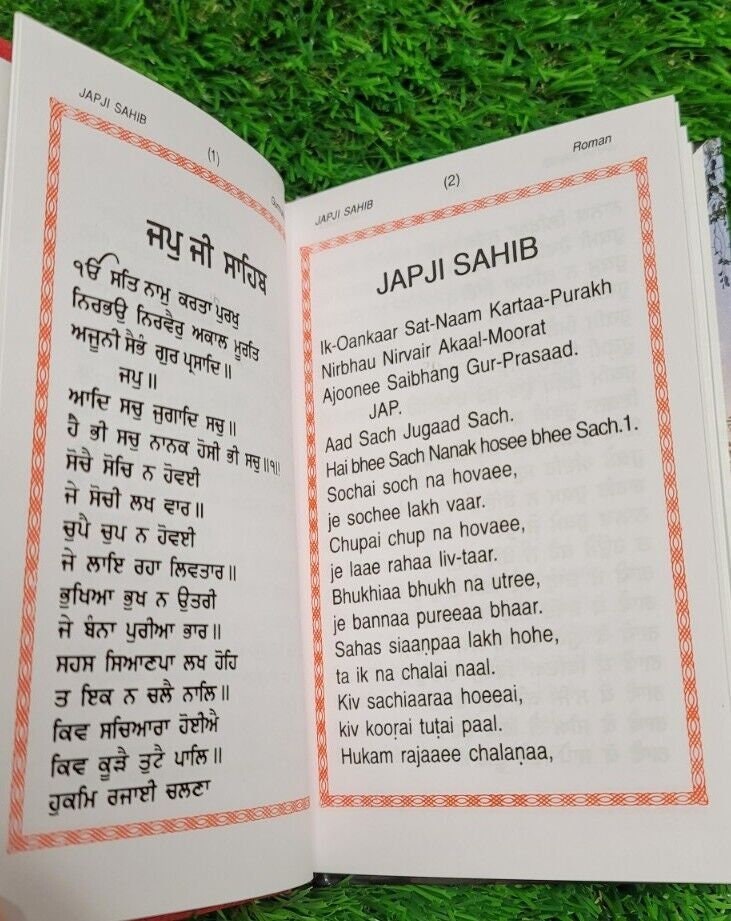 JAPJI SAHIB
(1)
ਜਪੁ ਜੀ ਸਾਹਿਬ
ੴ ਸਤਿ ਨਾਮੁ ਕਰਤਾ ਪੁਰਖੁ
ਨਿਰਭਉ ਨਿਰਵੈਰੁ ਅਕਾਲ ਮੂਰਤਿ
ਅਜੂਨੀ ਸੈਭੰ ਗੁਰ ਪ੍ਰਸਾਦਿ॥
ਜਪੁ॥
ਆਦਿ ਸਚੁ ਜੁਗਾਦਿ ਸਚੁ॥
ਹੈ ਭੀ ਸਚੁ ਨਾਨਕ ਹੋਸੀ ਭੀ ਸਚੁ॥੧॥
ਸੋਚੈ ਸੋਚਿ ਨ ਹੋਵਈ
ਜੇ ਸੋਚੀ ਲਖ ਵਾਰ॥
ਚੁਪੈ ਚੁਪ ਨ ਹੋਵਈ
ਜੇ ਲਾਇ ਰਹਾ ਲਿਵਤਾਰ॥
ਭੁਖਿਆ ਭੁਖ ਨ ਉਤਰੀ
ਜੇ ਬੰਨਾ ਪੁਰੀਆ ਭਾਰ॥
ਸਹਸ ਸਿਆਣਪਾ ਲਖ ਹੋਹਿ
ਤ ਇਕ ਨ ਚਲੈ ਨਾਲਿ॥
ਕਿਵ ਸਚਿਆਰਾ ਹੋਈਐ
ਕਿਵ ਕੂੜੈ ਤੁਟੈ ਪਾਲਿ॥
ਹੁਕਮਿ ਰਜਾਈ ਚਲਣਾ
JAPJI SAHIB
(2)
Roman
JAPJI SAHIB
Ik-Oankaar Sat-Naam Kartaa-Purakh
Nirbhau Nirvair Akaal-Moorat
Ajoonee Saibhang Gur-Prasaad.
JAP.
Aad Sach Jugaad Sach.
Hai bhee Sach Nanak hosee bhee Sach.1.
Sochai soch na hovaee,
je sochee lakh vaar.
Chupai chup na hovaee,
je laae rahaa liv-taar.
Bhukhiaa bhukh na utree,
je bannaa pureeaa bhaar.
Sahas siaaṇpaa lakh hohe,
ta ik na chalai naal.
Kiv sachiaaraa hoeeai,
kiv kooṛai tuṭai paal.
Hukam rajaaee chalaṇaa,